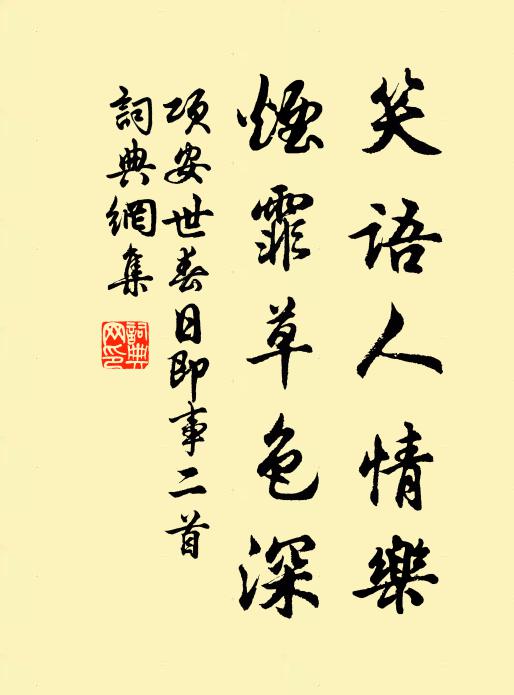 笑語人情樂
煙霏草色深
項安世春日即事二首
詞典網集
詞典網印